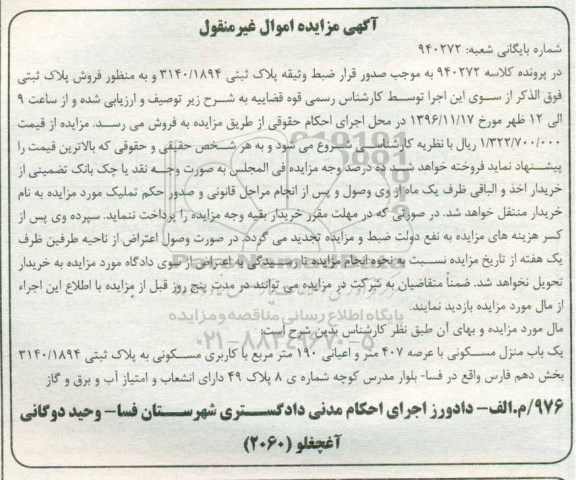 آگهی مزایده اموال غیرمنقول
شماره بایگانی شعبه: ۹۴۰۲۷۲
در پرونده کلاسه ۹۴۰۲۷۲ به موجب صدور قرار ضبط وثیقه پلاک ثبتی ۳۱۴۰/۱۸۹۴ و به منظور فروش پلاک ثبتی
فوق الذکر از سوی این اجرا توسط کارشناس رسمی قوه قضاییه به شرح زیر توصیف و ارزیابی شده و از ساعت ۹
الی ۱۲ ظهر مورخ ۱۳۹۶/۱۱/۱۷ در محل اجرای احکام حقوقی از طریق مزایده به فروش می رسد. مزایده از قیمت
۱/۳۲۲/۷۰۰/۰۰۰ ریال با نظریه کارشناسی شروع می شود و به هر شخص حقیقی و حقوقی که بالاترین قیمت را
پیشنهاد نماید فروخته خواهد شد. ده درصد وجه مزایده فی المجلس به صورت وجه نقد یا چک بانک تضمینی از
خریدار اخذ و الباقی ظرف یک ماه از وی وصول و پس از انجام مراحل قانونی و صدور حکم تملیک مورد مزایده به نام
خریدار منتقل خواهد شد. در صورتی که در مهلت مقرر خریدار بقیه وجه مزایده را پرداخت ننماید. سپرده وی پس از
کسر هزینه های مزایده به نفع دولت ضبط و مزایده تجدید می گردد. در صورت وصول اعتراض از ناحیه طرفین ظرف
یک هفته از تاریخ مزایده نسبت به نحوه انجام مزایده تا رسیدگی به اعتراض از سوی دادگاه مورد مزایده به خریدار
تحویل نخواهد شد. ضمناً متقاضیان به شرکت در مزایده می توانند در مدت پنج روز قبل از مزایده با اطلاع این اجراء
از مال مورد مزایده بازدید نمایند.
پایگاه اطلاع رسانی مناقصه و مزایده
مال مورد مزایده و بهای آن طبق نظر کارشناس بدین شرح است:
۰۲۱-۸۸۳۴۹۶۷۰-۵
یک باب منزل مسکونی با عرصه ۴۰۷ متر و اعیانی ۱۹۰ متر مربع با کاربری مسکونی به پلاک ثبتی ۳۱۴۰/۱۸۹۴
بخش دهم فارس واقع در فسا- بلوار مدرس کوچه شماره ی ۸ پلاک ۴۹ دارای انشعاب و امتیاز آب و برق و گاز
۹۷۶/م.الف- دادورز اجرای احکام مدنی دادگستری شهرستان فسا- وحید دوگانی
آغچغلو (۲۰۶۰)